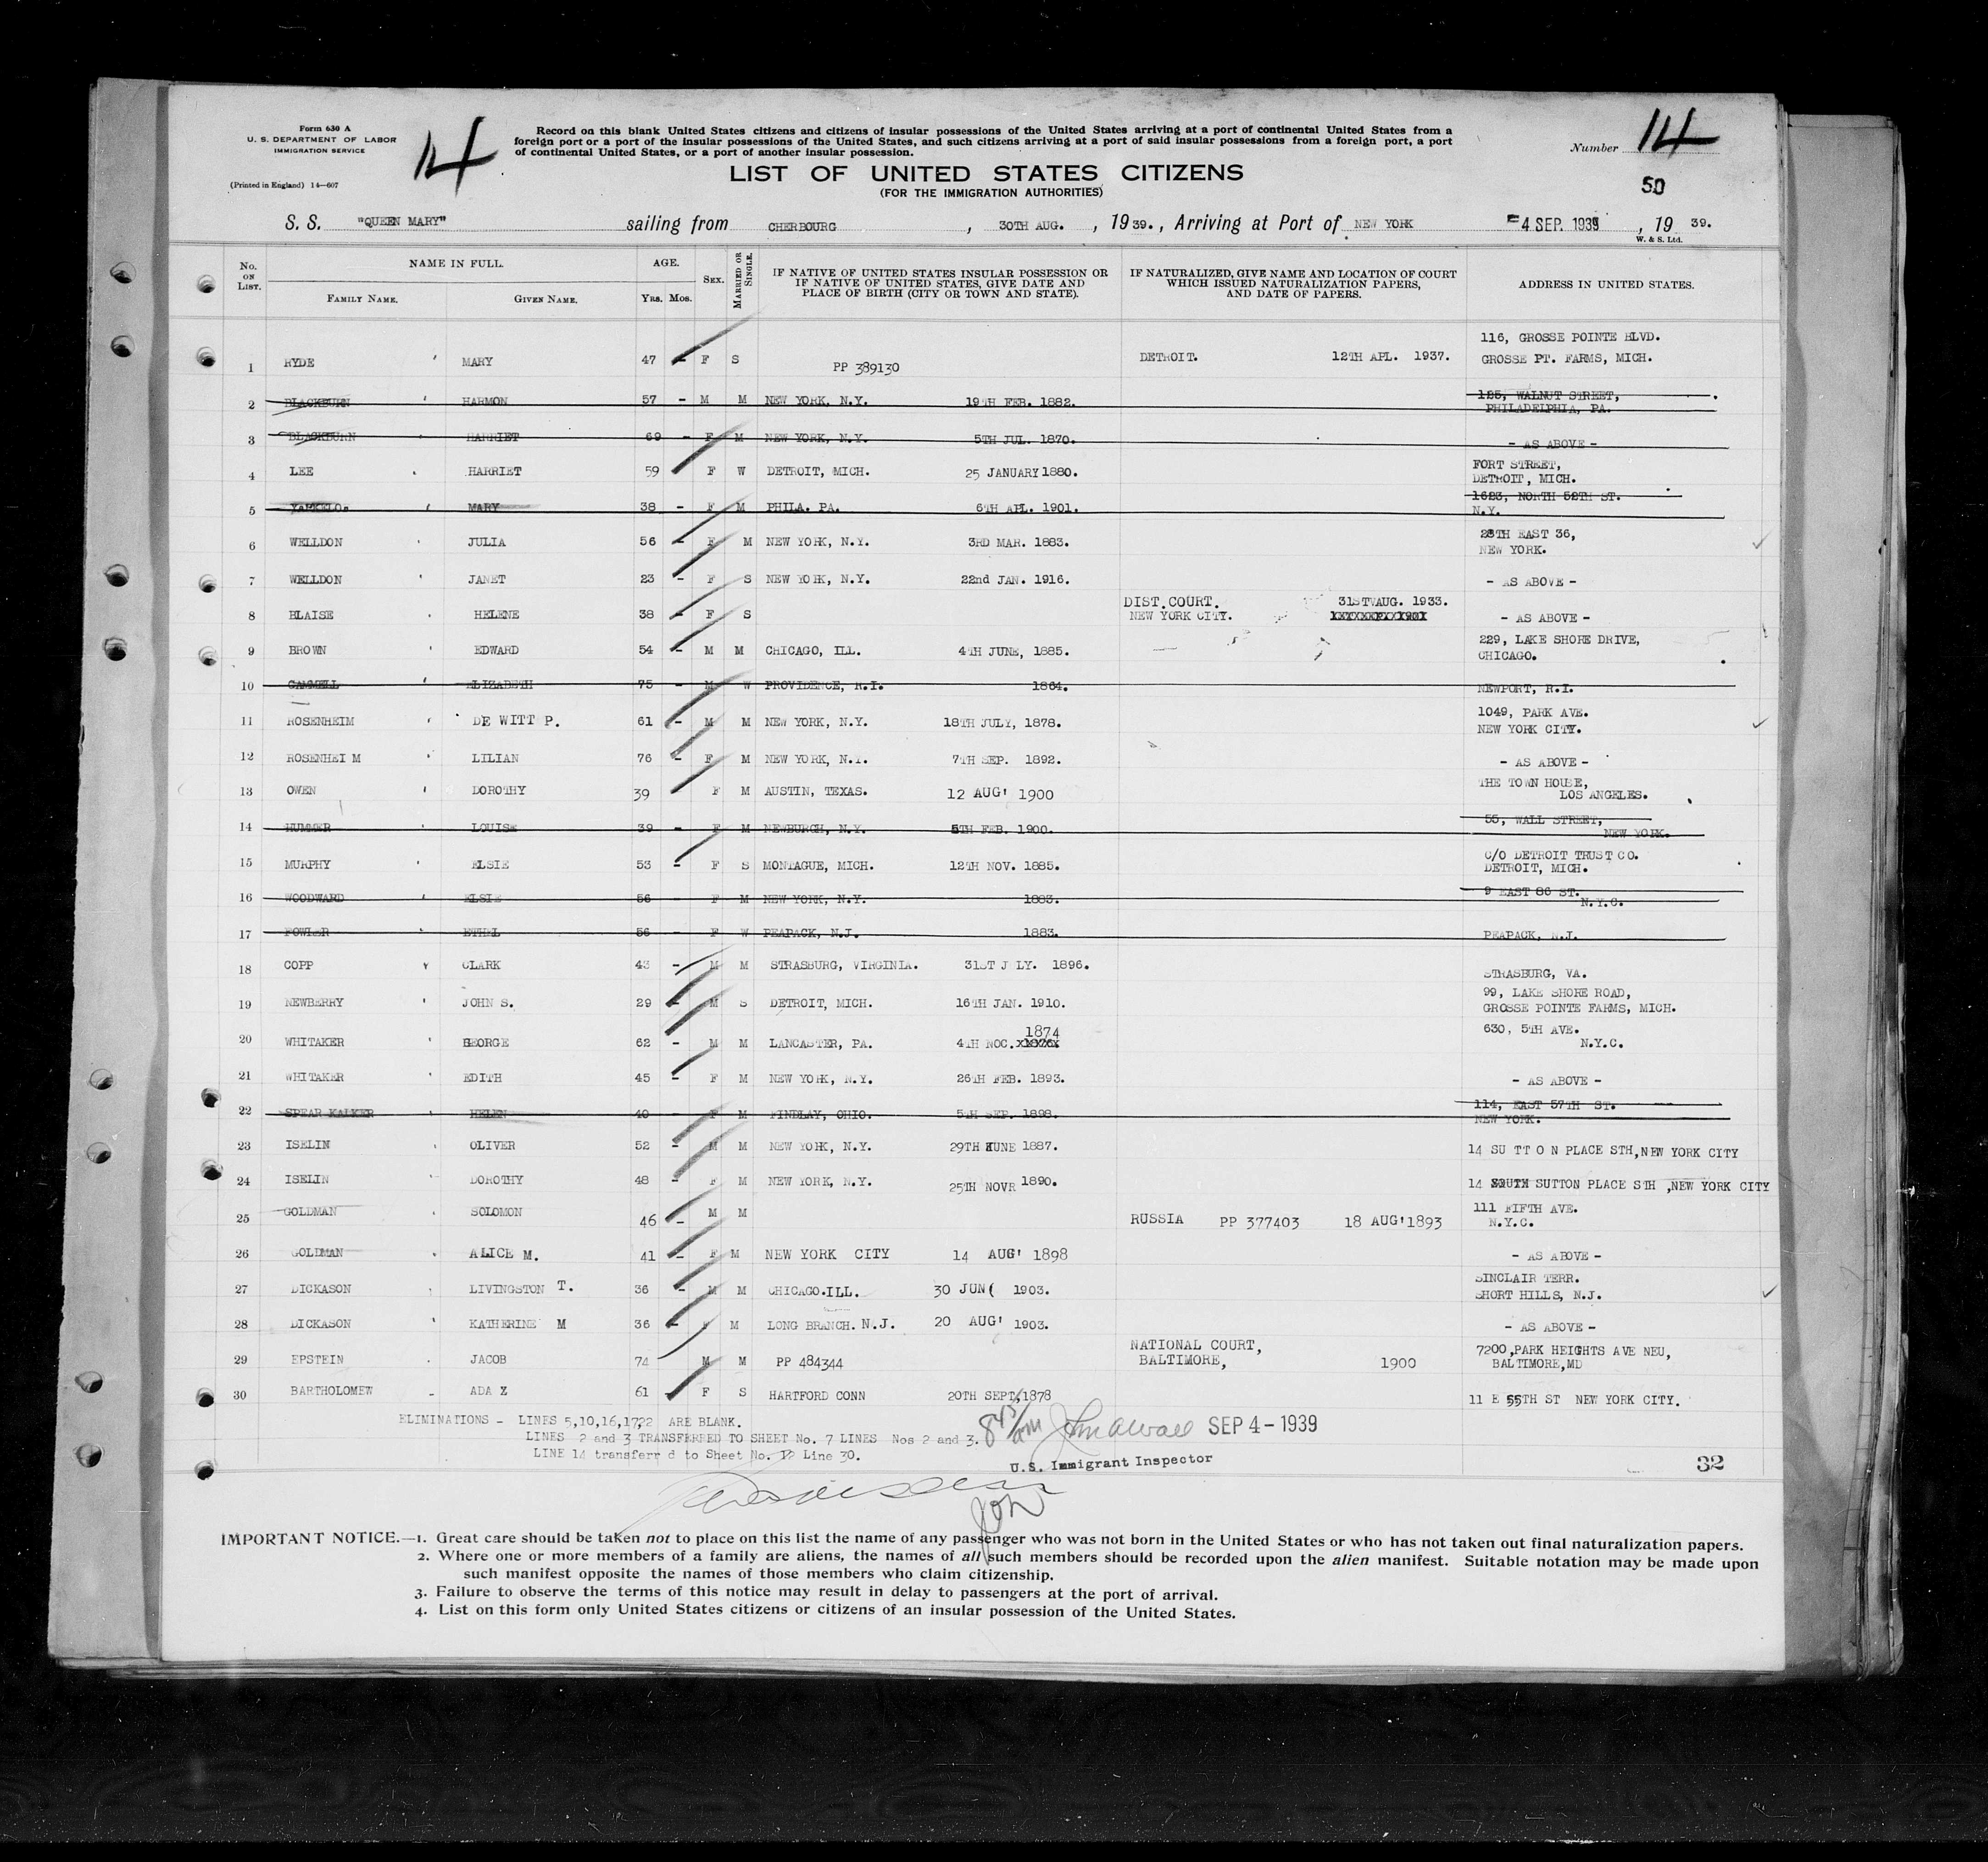 Form 630 A
U. S. DEPARTMENT OF LABOR
IMMIGRATION SERVICE
(Printed in England) 14—607
14
Record on this blank United States citizens and citizens of insular possessions of the United States arriving at a port of continental United States from a
foreign port or a port of the insular possessions of the United States, and such citizens arriving at a port of said insular possessions from a foreign port, a port
of continental United States, or a port of another insular possession.
Number 14
LIST OF UNITED STATES CITIZENS
(FOR THE IMMIGRATION AUTHORITIES)
50
S. S. "QUEEN MARY" sailing from CHERBOURG , 30TH AUG. , 1939. , Arriving at Port of NEW YORK 4 SEP. 1939 , 19 39.
W. & S. Ltd.
No. ON LIST. NAME IN FULL. FAMILY NAME. GIVEN NAME. AGE. YRS. MOS. SEX. MARRIED OR SINGLE. IF NATIVE OF UNITED STATES INSULAR POSSESSION OR IF NATIVE OF UNITED STATES, GIVE DATE AND PLACE OF BIRTH (CITY OR TOWN AND STATE). IF NATURALIZED, GIVE NAME AND LOCATION OF COURT WHICH ISSUED NATURALIZATION PAPERS, AND DATE OF PAPERS. ADDRESS IN UNITED STATES.
1 HYDE MARY 47 - F S PP 389130 DETROIT. 12TH APL. 1937. 116, GROSSE POINTE BLVD. GROSSE PT. FARMS, MICH.
2 BLACKBURN HARMON 57 - M M NEW YORK, N.Y. 19TH FEB. 1882. 125, WALNUT STREET, PHILADELPHIA, PA.
3 BLACKBURN HARRIET 69 - F M NEW YORK, N.Y. 5TH JUL. 1870. - AS ABOVE -
4 LEE HARRIET 59 F W DETROIT, MICH. 25 JANUARY 1880. FORT STREET, DETROIT, MICH.
5 MARY 38 - F M PHILA. PA. 6TH APL. 1901. 1623, NORTH 52TH ST. N.Y.
6 WELLDON JULIA 56 - F M NEW YORK, N.Y. 3RD MAR. 1883. 28TH EAST 36, NEW YORK.
7 WELLDON JANET 23 - F S NEW YORK, N.Y. 22nd JAN. 1916. - AS ABOVE -
8 BLAISE HELENE 38 - F S DIST. COURT. NEW YORK CITY. 31ST AUG. 1933. - AS ABOVE -
9 BROWN EDWARD 54 - M M CHICAGO, ILL. 4TH JUNE, 1885. 229, LAKE SHORE DRIVE, CHICAGO.
10 GAMMELL ELIZABETH 75 - M W PROVIDENCE, R.I. 1864. NEWPORT, R.I.
11 ROSENHEIM DE WITT P. 61 - M M NEW YORK, N.Y. 18TH JULY, 1878. 1049, PARK AVE. NEW YORK CITY.
12 ROSENHEI M LILIAN 76 - F M NEW YORK, N.Y. 7TH SEP. 1892. - AS ABOVE -
13 OWEN DOROTHY 39 F M AUSTIN, TEXAS. 12 AUG' 1900 THE TOWN HOUSE, LOS ANGELES.
14 HUMMER LOUISE 39 - F M NEWBURGH, N.Y. 5TH FEB. 1900. 55, WALL STREET, NEW YORK.
15 MURPHY ELSIE 53 - F S MONTAGUE, MICH. 12TH NOV. 1885. C/O DETROIT TRUST CO. DETROIT, MICH.
16 WOODWARD ELSIE 56 - F M NEW YORK, N.Y. 1883. 9 EAST 86 ST. N.Y.C.
17 FOWLER ETHEL 56 - F W PEAPACK, N.J. 1883. PEAPACK, N.J.
18 COPP CLARK 43 - M M STRASBURG, VIRGINIA. 31ST JULY. 1896. STRASBURG, VA.
19 NEWBERRY JOHN S. 29 - M S DETROIT, MICH. 16TH JAN. 1910. 99, LAKE SHORE ROAD, GROSSE POINTE FARMS, MICH.
20 WHITAKER GEORGE 62 - M M LANCASTER, PA. 4TH NOC. 1874 630, 5TH AVE. N.Y.C.
21 WHITAKER EDITH 45 - F M NEW YORK, N.Y. 26TH FEB. 1893. - AS ABOVE -
22 SPEAR KALKER HELEN 40 - F M FINDLAY, OHIO. 5TH SEP. 1898. 114, EAST 57TH ST. NEW YORK.
23 ISELIN OLIVER 52 - M M NEW YORK, N.Y. 29TH JUNE 1887. 14 SUTTON PLACE STH, NEW YORK CITY
24 ISELIN DOROTHY 48 - F M NEW YORK, N.Y. 25TH NOVR 1890. 14 SUTTON PLACE STH ,NEW YORK CITY
25 GOLDMAN SOLOMON 46 - M M RUSSIA PP 377403 18 AUG' 1893 111 FIFTH AVE. N.Y.C.
26 GOLDMAN ALICE M. 41 - F M NEW YORK CITY 14 AUG' 1898 - AS ABOVE -
27 DICKASON LIVINGSTON T. 36 - M M CHICAGO.ILL. 30 JUN( 1903. SINCLAIR TERR. SHORT HILLS, N.J.
28 DICKASON KATHERINE M 36 - F M LONG BRANCH. N.J. 20 AUG' 1903. - AS ABOVE -
29 EPSTEIN JACOB 74 M M PP 484344 NATIONAL COURT, BALTIMORE, 1900 7200,PARK HEIGHTS AVE NEU, BALTIMORE,MD
30 BARTHOLOMEW ADA Z 61 F S HARTFORD CONN 20TH SEPT,1878 11 E 55TH ST NEW YORK CITY.
ELIMINATIONS - LINES 5,10,16,17,22 ARE BLANK.
LINES 2 and 3 TRANSFERRED TO SHEET No. 7 LINES Nos 2 and 3.
LINE 14 transferr d to Sheet No. 12 Line 30.
843/am SEP 4 - 1939
U.S. Immigrant Inspector
32
IMPORTANT NOTICE.—1. Great care should be taken not to place on this list the name of any passenger who was not born in the United States or who has not taken out final naturalization papers.
2. Where one or more members of a family are aliens, the names of all such members should be recorded upon the alien manifest. Suitable notation may be made upon
such manifest opposite the names of those members who claim citizenship.
3. Failure to observe the terms of this notice may result in delay to passengers at the port of arrival.
4. List on this form only United States citizens or citizens of an insular possession of the United States.